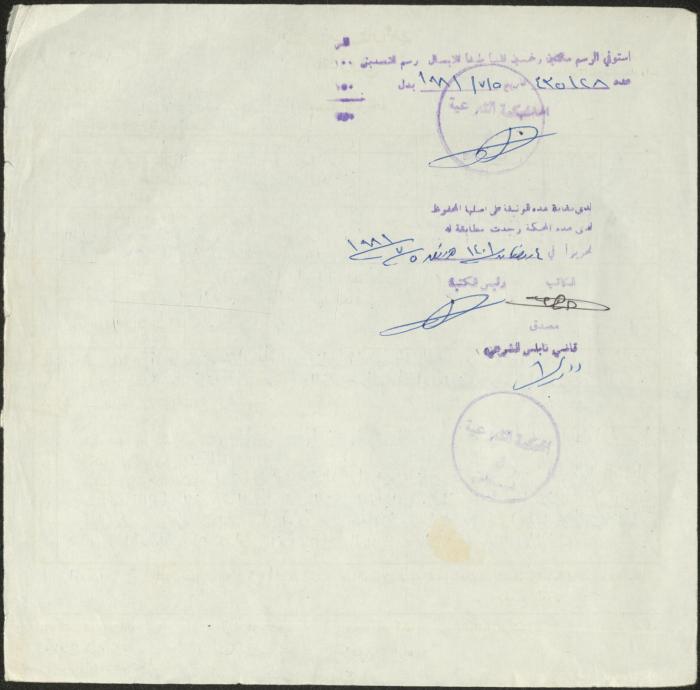 فلس
استوفي الرسم مائتين وخمسين فلساً طبقاً للايصال رسم التصديق ١٠٠
عدد ٤٣٥١٢٨ تاريخ ١٩٨١/٧/٥ بدل ١٥٠
٢٥٠
المحكمة الشرعية
لدى مقابلة هذه الوثيقة على اصلها المحفوظ
لدى هذه المحكمة وجدت مطابقة له
تحريراً في ٤ رمضان ١٤٠١ هـ وفق ١٩٨١/٧/٥
الكاتب ورئيس الكتبة
مصدق
قاضي نابلس الشرعي
المحكمة الشرعية